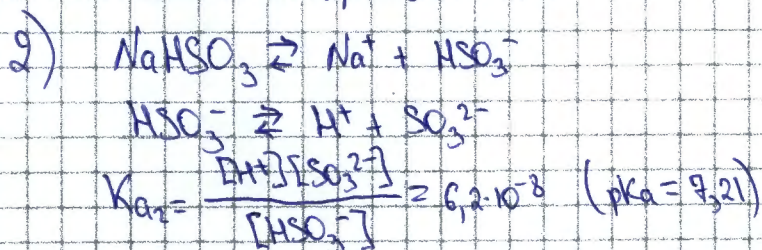 2) NaHSO₃ ⇄ Na⁺ + HSO₃⁻
HSO₃⁻ ⇄ H⁺ + SO₃²⁻
Ka₂ = [H⁺][SO₃²⁻] / [HSO₃⁻] = 6,2·10⁻⁸ (pKa = 7,21)